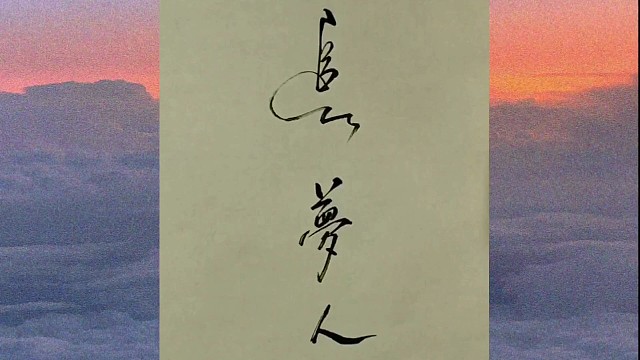 追夢人